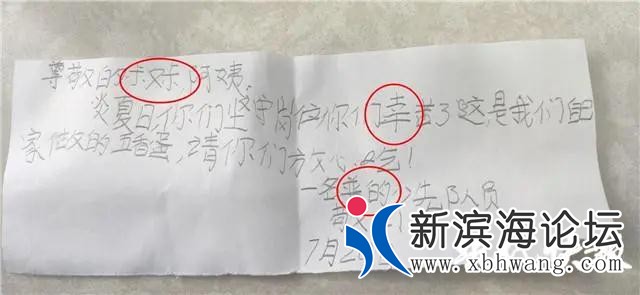 尊敬的叔叔、阿姨,
炎夏日你们坚守岗位你们幸苦了这是我们自
家做的五香蛋,请你们放心吃!
一名 的少先队员
7月2
新滨海论坛
www.xbhwang.com